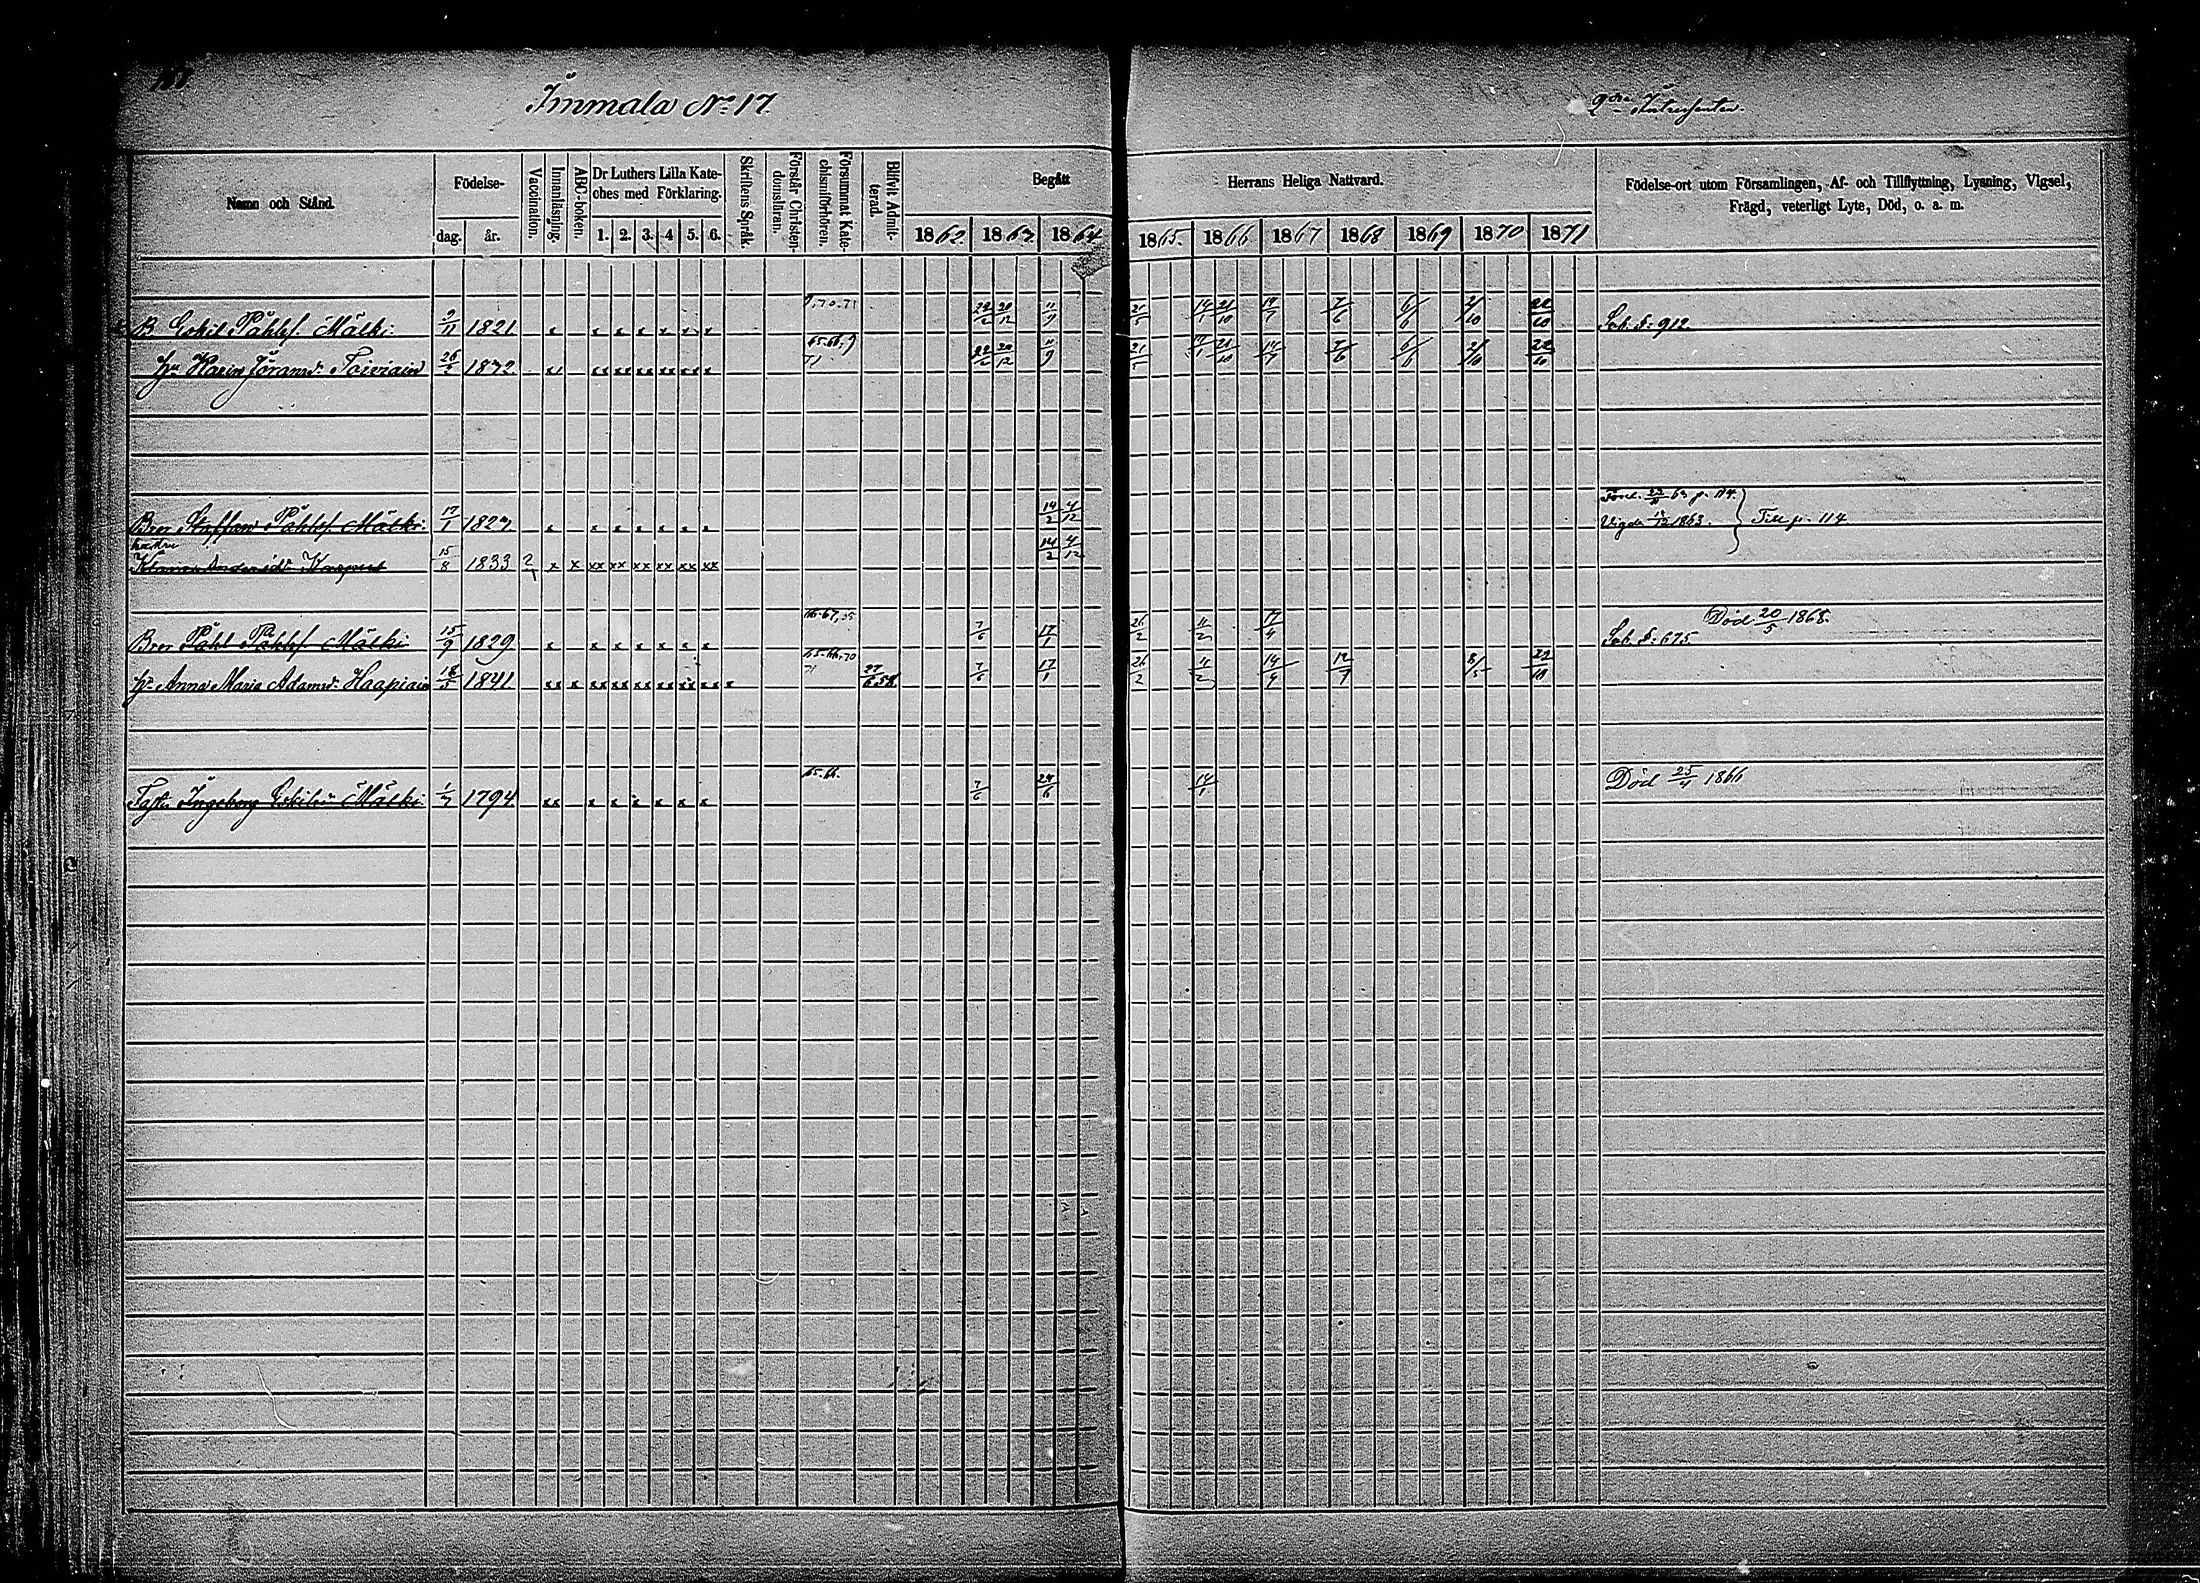 Immala No. 17.
2dra Intressenten.
Namn och Stånd.
Födelse-
dag.
år.
Vaccination.
Innanläsning.
ABC-boken.
Dr Luthers Lilla Kate-
ches med Förklaring.
1. 2. 3. 4 5. 6.
Skriftens Språk.
Förstår Christen-
domsläran.
Försummat Kate-
chismiförhören.
Blifvit Admit-
terad.
Begått
Herrans Heliga Nattvard.
1862. 1863. 1864. 1865. 1866 1867 1868 1869 1870 1871
Födelse-ort utom Församlingen, Af- och Tillflyttning, Lysning, Vigsel,
Frägd, veterligt Lyte, Död, o. a. m.
B. Eskil Påhlsf. Mälki. 9/11 1821 x x x x x x x 70.71 22/2 20/12 11/9 21/5 14/1 21/10 14/7 7/6 6/6 2/10 22/10 Sch. §: 912
hu Karin Jöransdr Toiviain 26/5 xx xx xx xx xx xx x 65-66. 71 22/2 20/12 11/9 21/5 14/1 21/10 14/7 7/6 6/6 2/10 22/10
Bror Staffan Påhlsf. Mälki. 17/1 x x x x x x x 14/2 4/12 Vigde 1863. Till p. 114
hustru
15/8 1833 x x xx xx xx xx xx xx 14/2 4/12
Bror Påhl Påhlsf. Mälki 15/9 1829 x x x x x x x 7/6 17/1 26/2 11/2 17/4 Sch. §: 675. Död 20/5 1868.
hu Anna Maria Adamsdr Haapiain 18/5 1841. xx x xx xx xx xx xx xx x 65-66, 70 71 7/6 17/1 26/2 11/2 14/4 12/7 8/5 22/10
Faster Ingeborg Eskilsdr Mälki 1/7 1794 xx x x x x x x 65-66. 7/6 24/6 14/1 Död 25/4 1866